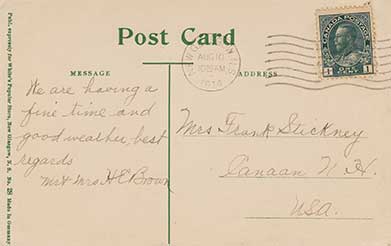 Post Card
NEW GLASGOW N.S.
AUG 10
1914
CANADA POSTAGE
1 1
MESSAGE
ADDRESS
We are having a
fine time and
good weather, best
regards
Mr & Mrs H E Brown
Mrs Frank Stickney
Canaan N.H.
USA.
Publ. expressly for White's Popular Store, New Glasgow, N. S. No. 28 Made in Germany